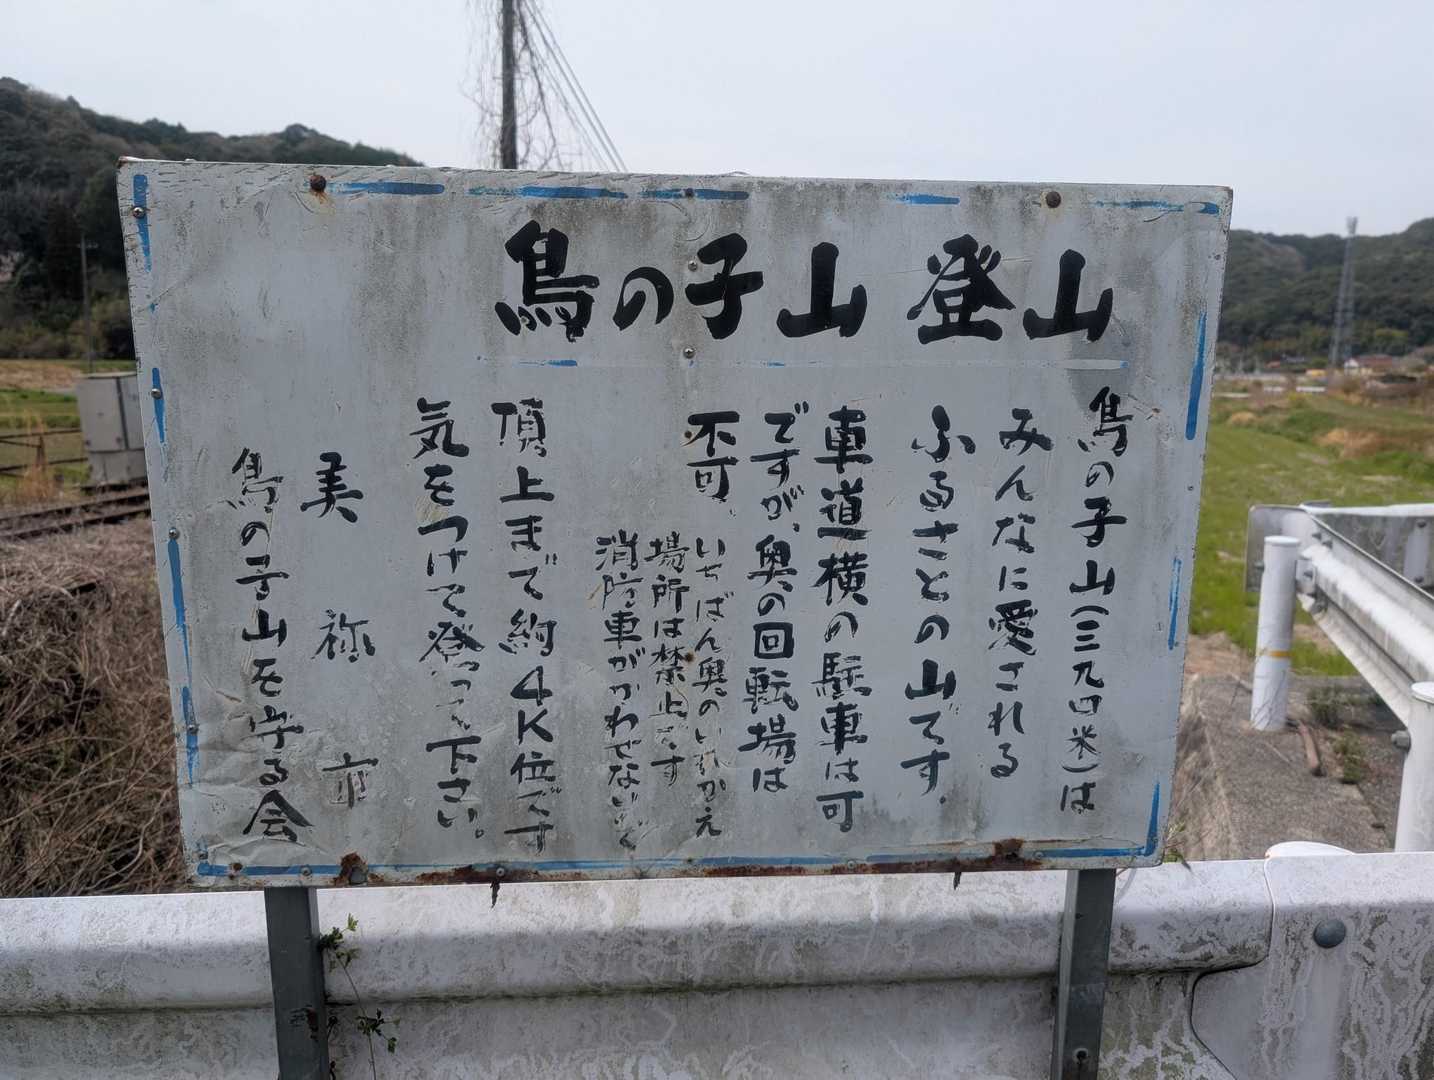 鳥の子山 登山
鳥の子山(三九四米)は
みんなに愛される
ふるさとの山です.
車道横の駐車は可
ですが、奥の回転場は
不可.
いちばん奥のいれかえ
場所は禁止です
消防車がかわせないので
頂上まで約4K位です
気をつけて登って下さい。
美祢市
鳥の子山を守る会